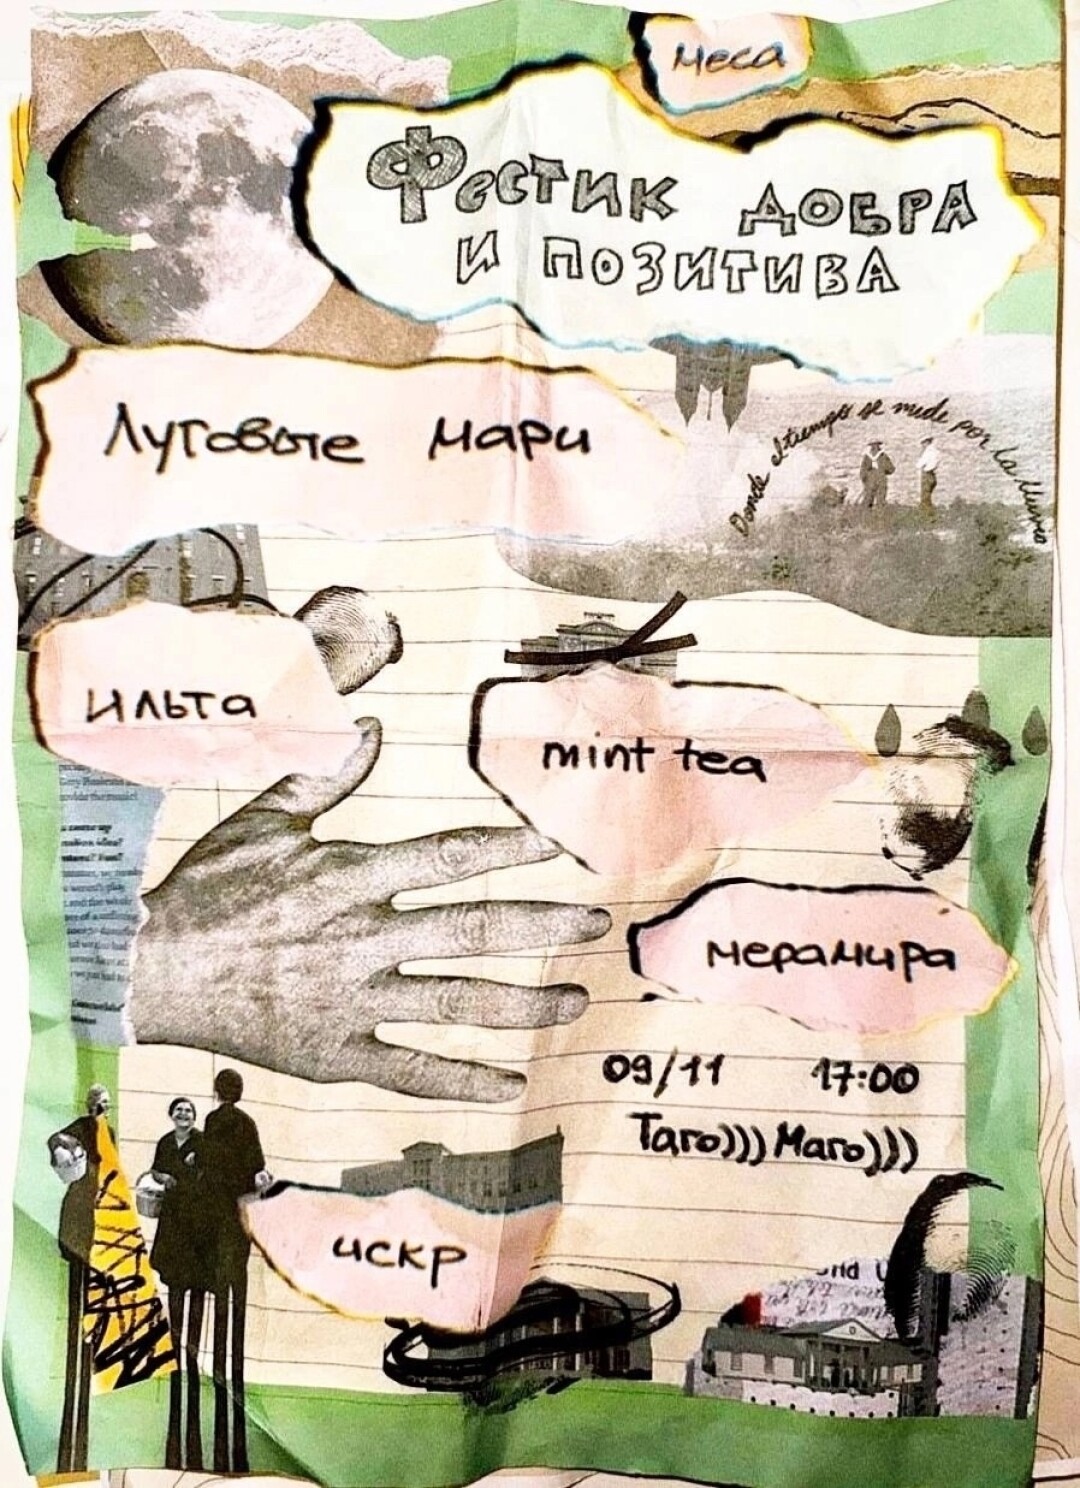 меса
Фестик добра
и позитива
Луговые мари
Donde el tiempo se mide por la lluvia
ильта
mint tea
мерамира
09/11 17:00
Таго))) Маго)))
искр